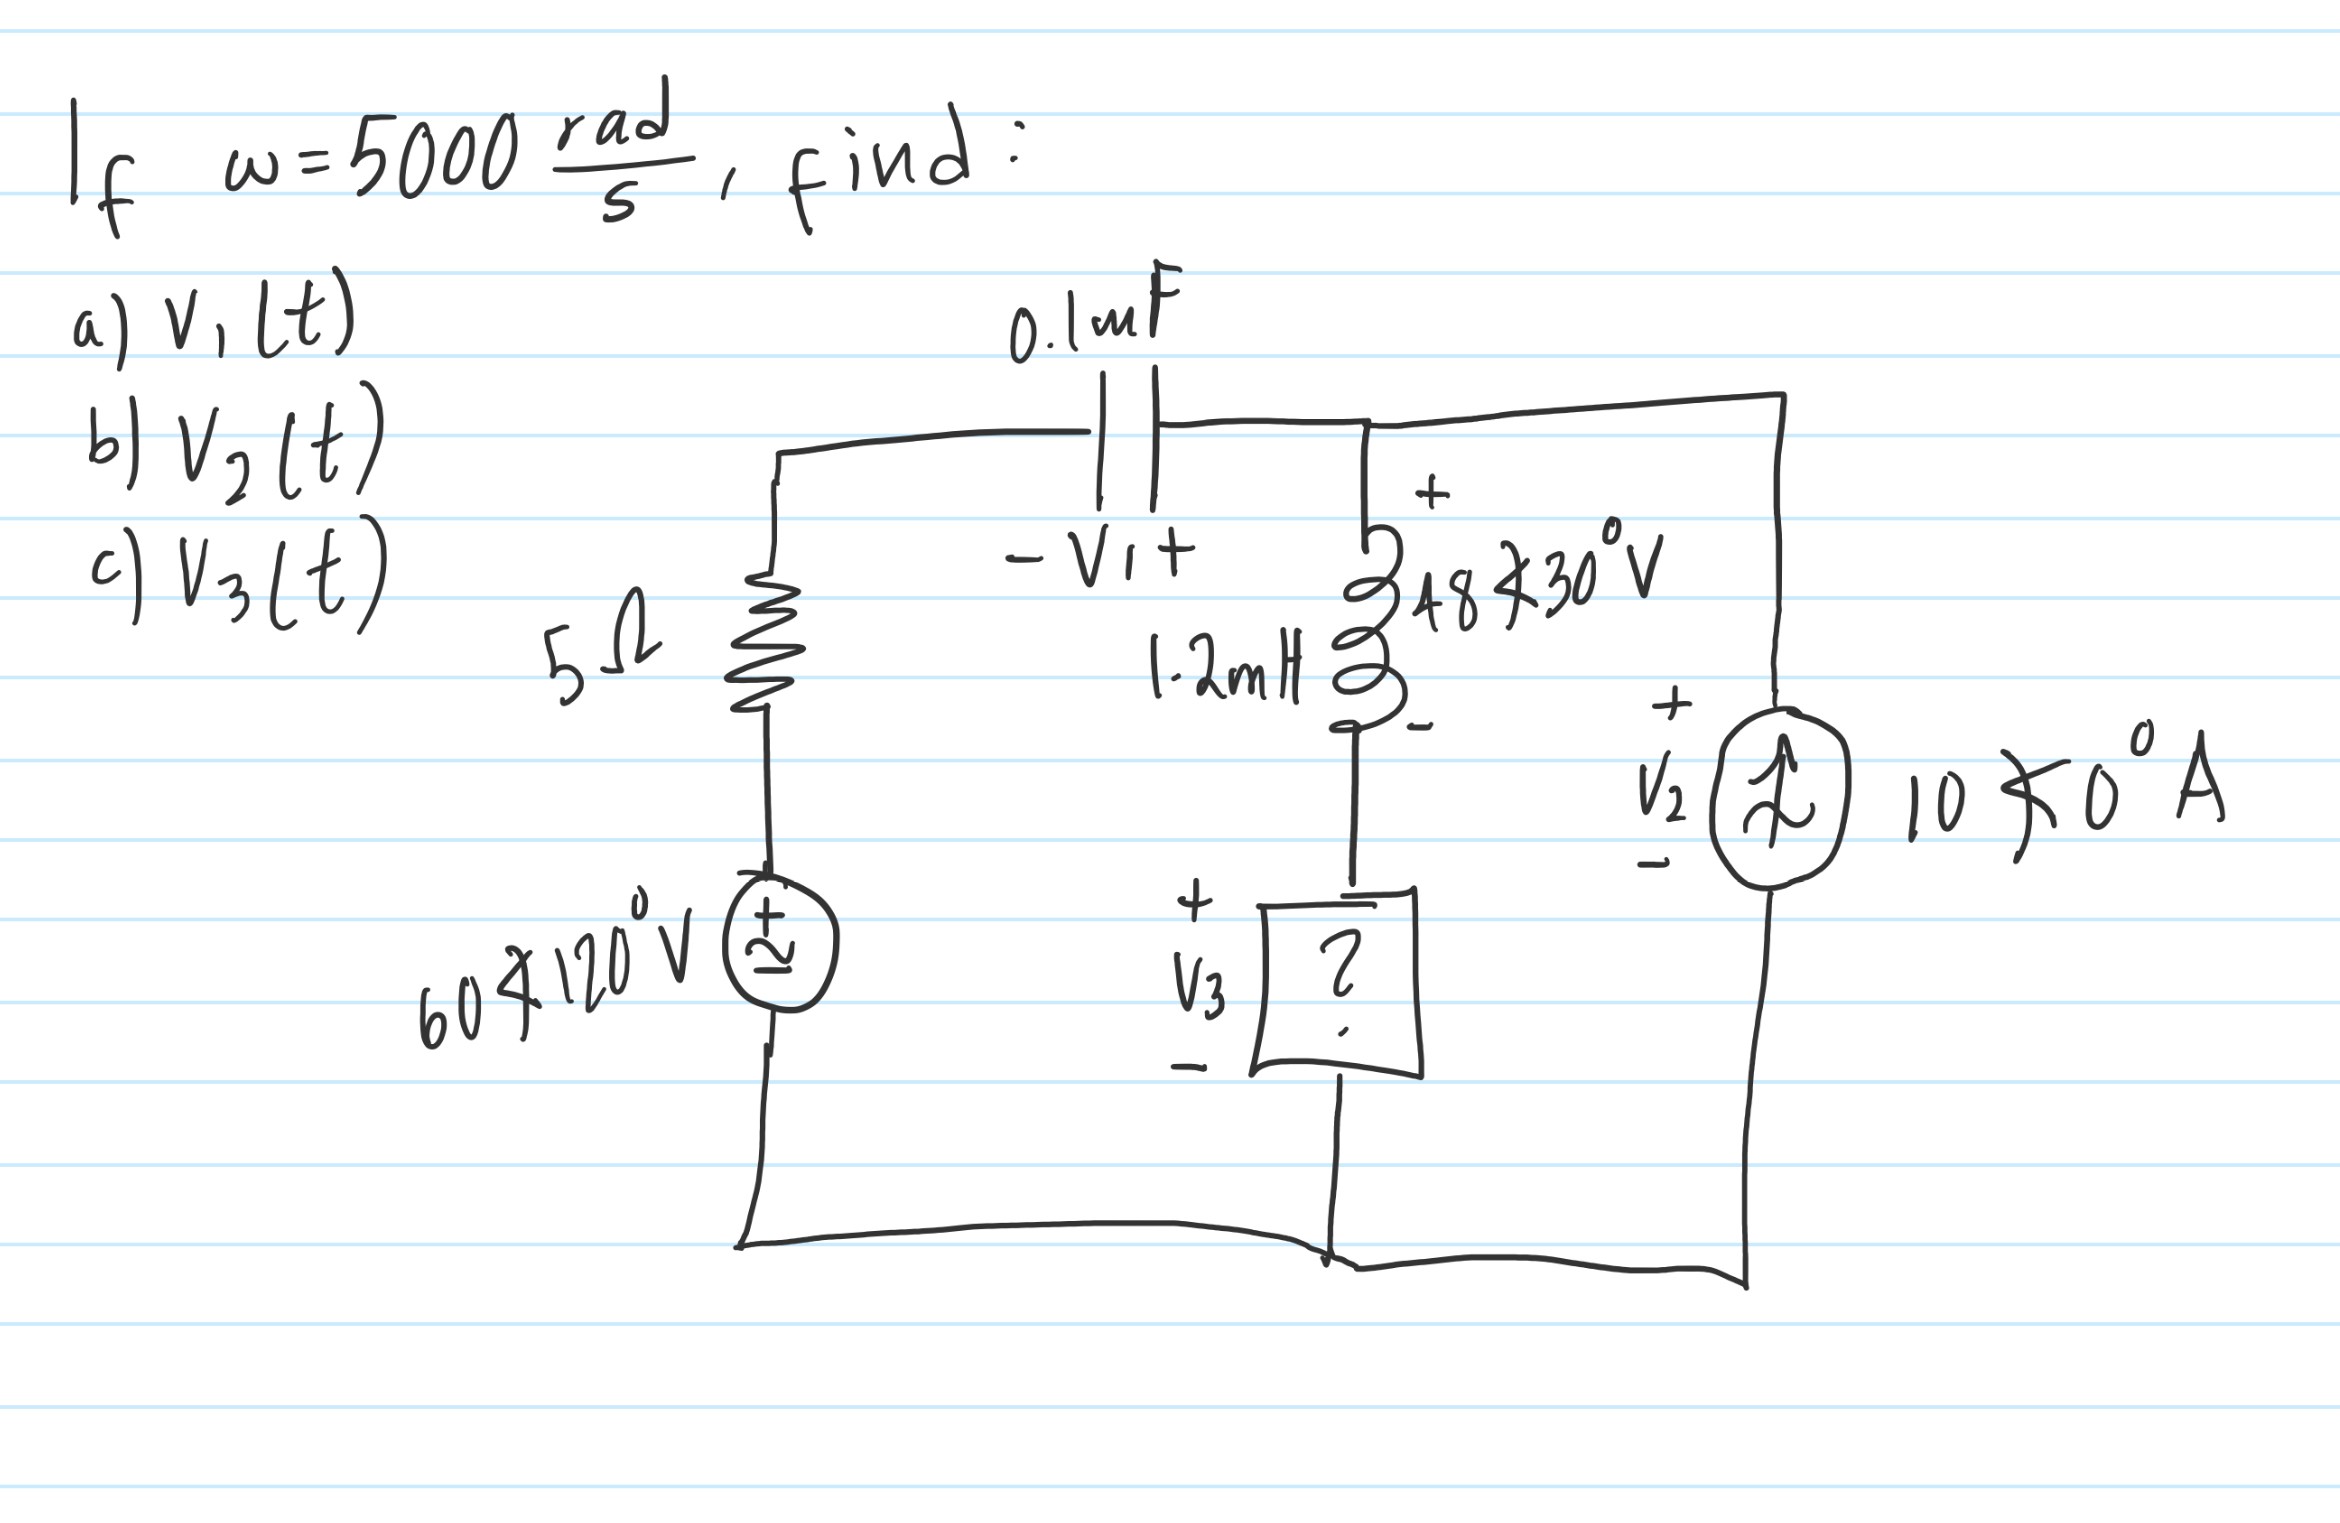 If ω=5000 rad/s, find:
a) V₁(t)
b) V₂(t)
c) V₃(t)
0.1mF
- V₁ +
+
48∠30°V
-
5Ω
1.2mH
+
V₂
-
10∠0°A
60∠120°V
+
+
V₃
-
?